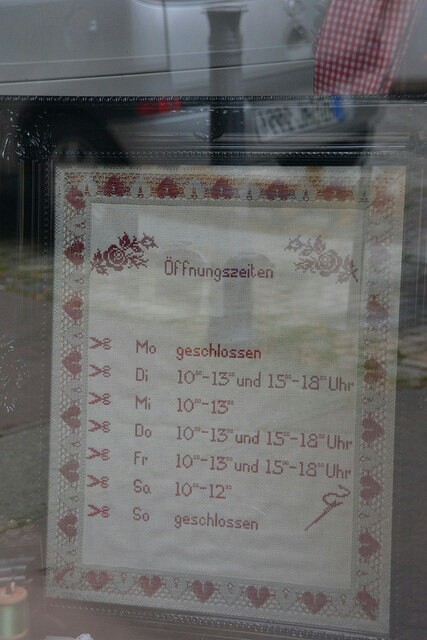 Öffnungszeiten
Mo geschlossen
Di 10⁰⁰-13⁰⁰ und 15⁰⁰-18⁰⁰ Uhr
Mi 10⁰⁰-13⁰⁰
Do 10⁰⁰-13⁰⁰ und 15⁰⁰-18⁰⁰ Uhr
Fr 10⁰⁰-13⁰⁰ und 15⁰⁰-18⁰⁰ Uhr
Sa 10⁰⁰-12⁰⁰
So geschlossen